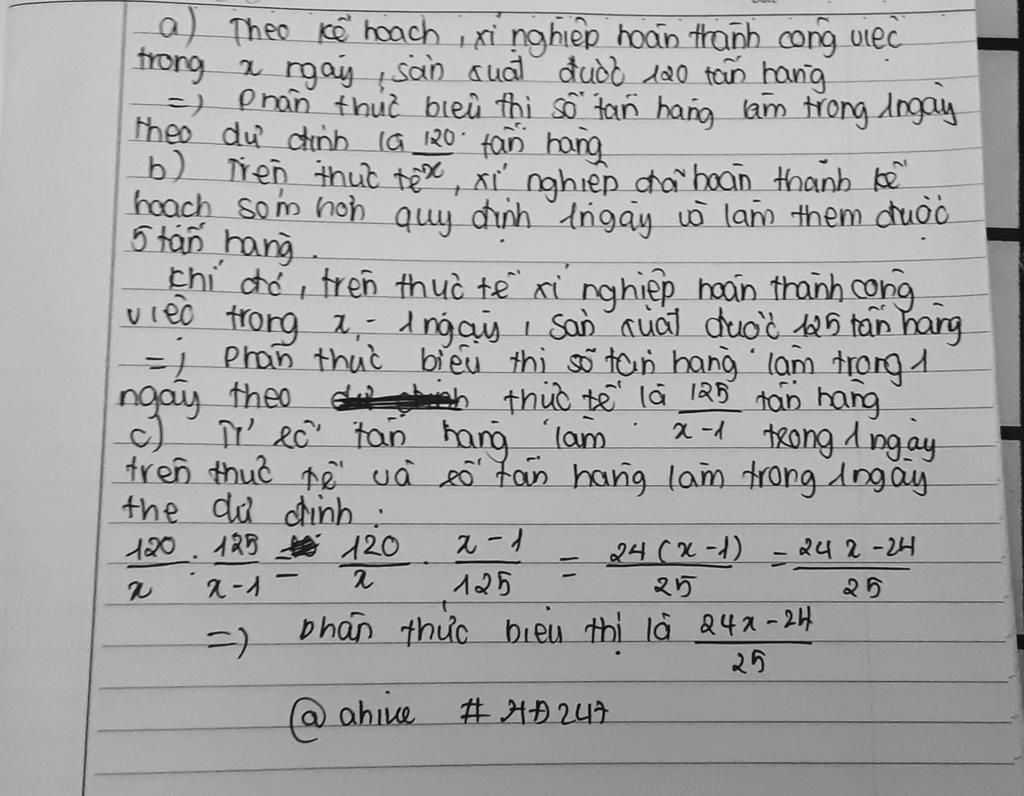 a) Theo kế hoạch, xí nghiệp hoàn thành công việc
trong x ngày, sản xuất được 120 tấn hàng
=> Phân thức biểu thị số tấn hàng làm trong 1 ngày
theo dự định là 120/x tấn hàng
b) Trên thực tế, xí nghiệp đã hoàn thành kế
hoạch sớm hơn quy định 1 ngày và làm thêm được
5 tấn hàng.
Khi đó, trên thực tế xí nghiệp hoàn thành công
việc trong x - 1 ngày, sản xuất được 125 tấn hàng
=> Phân thức biểu thị số tấn hàng làm trong 1
ngày theo thực tế là 125/(x-1) tấn hàng
c) Tỉ số tấn hàng làm trong 1 ngày
trên thực tế và số tấn hàng làm trong 1 ngày
the dự định :
120/x : 125/(x-1) = 120/x . (x-1)/125 = 24(x-1)/25 = (24x-24)/25
=> phân thức biểu thị là (24x-24)/25
@ahive #HĐ247